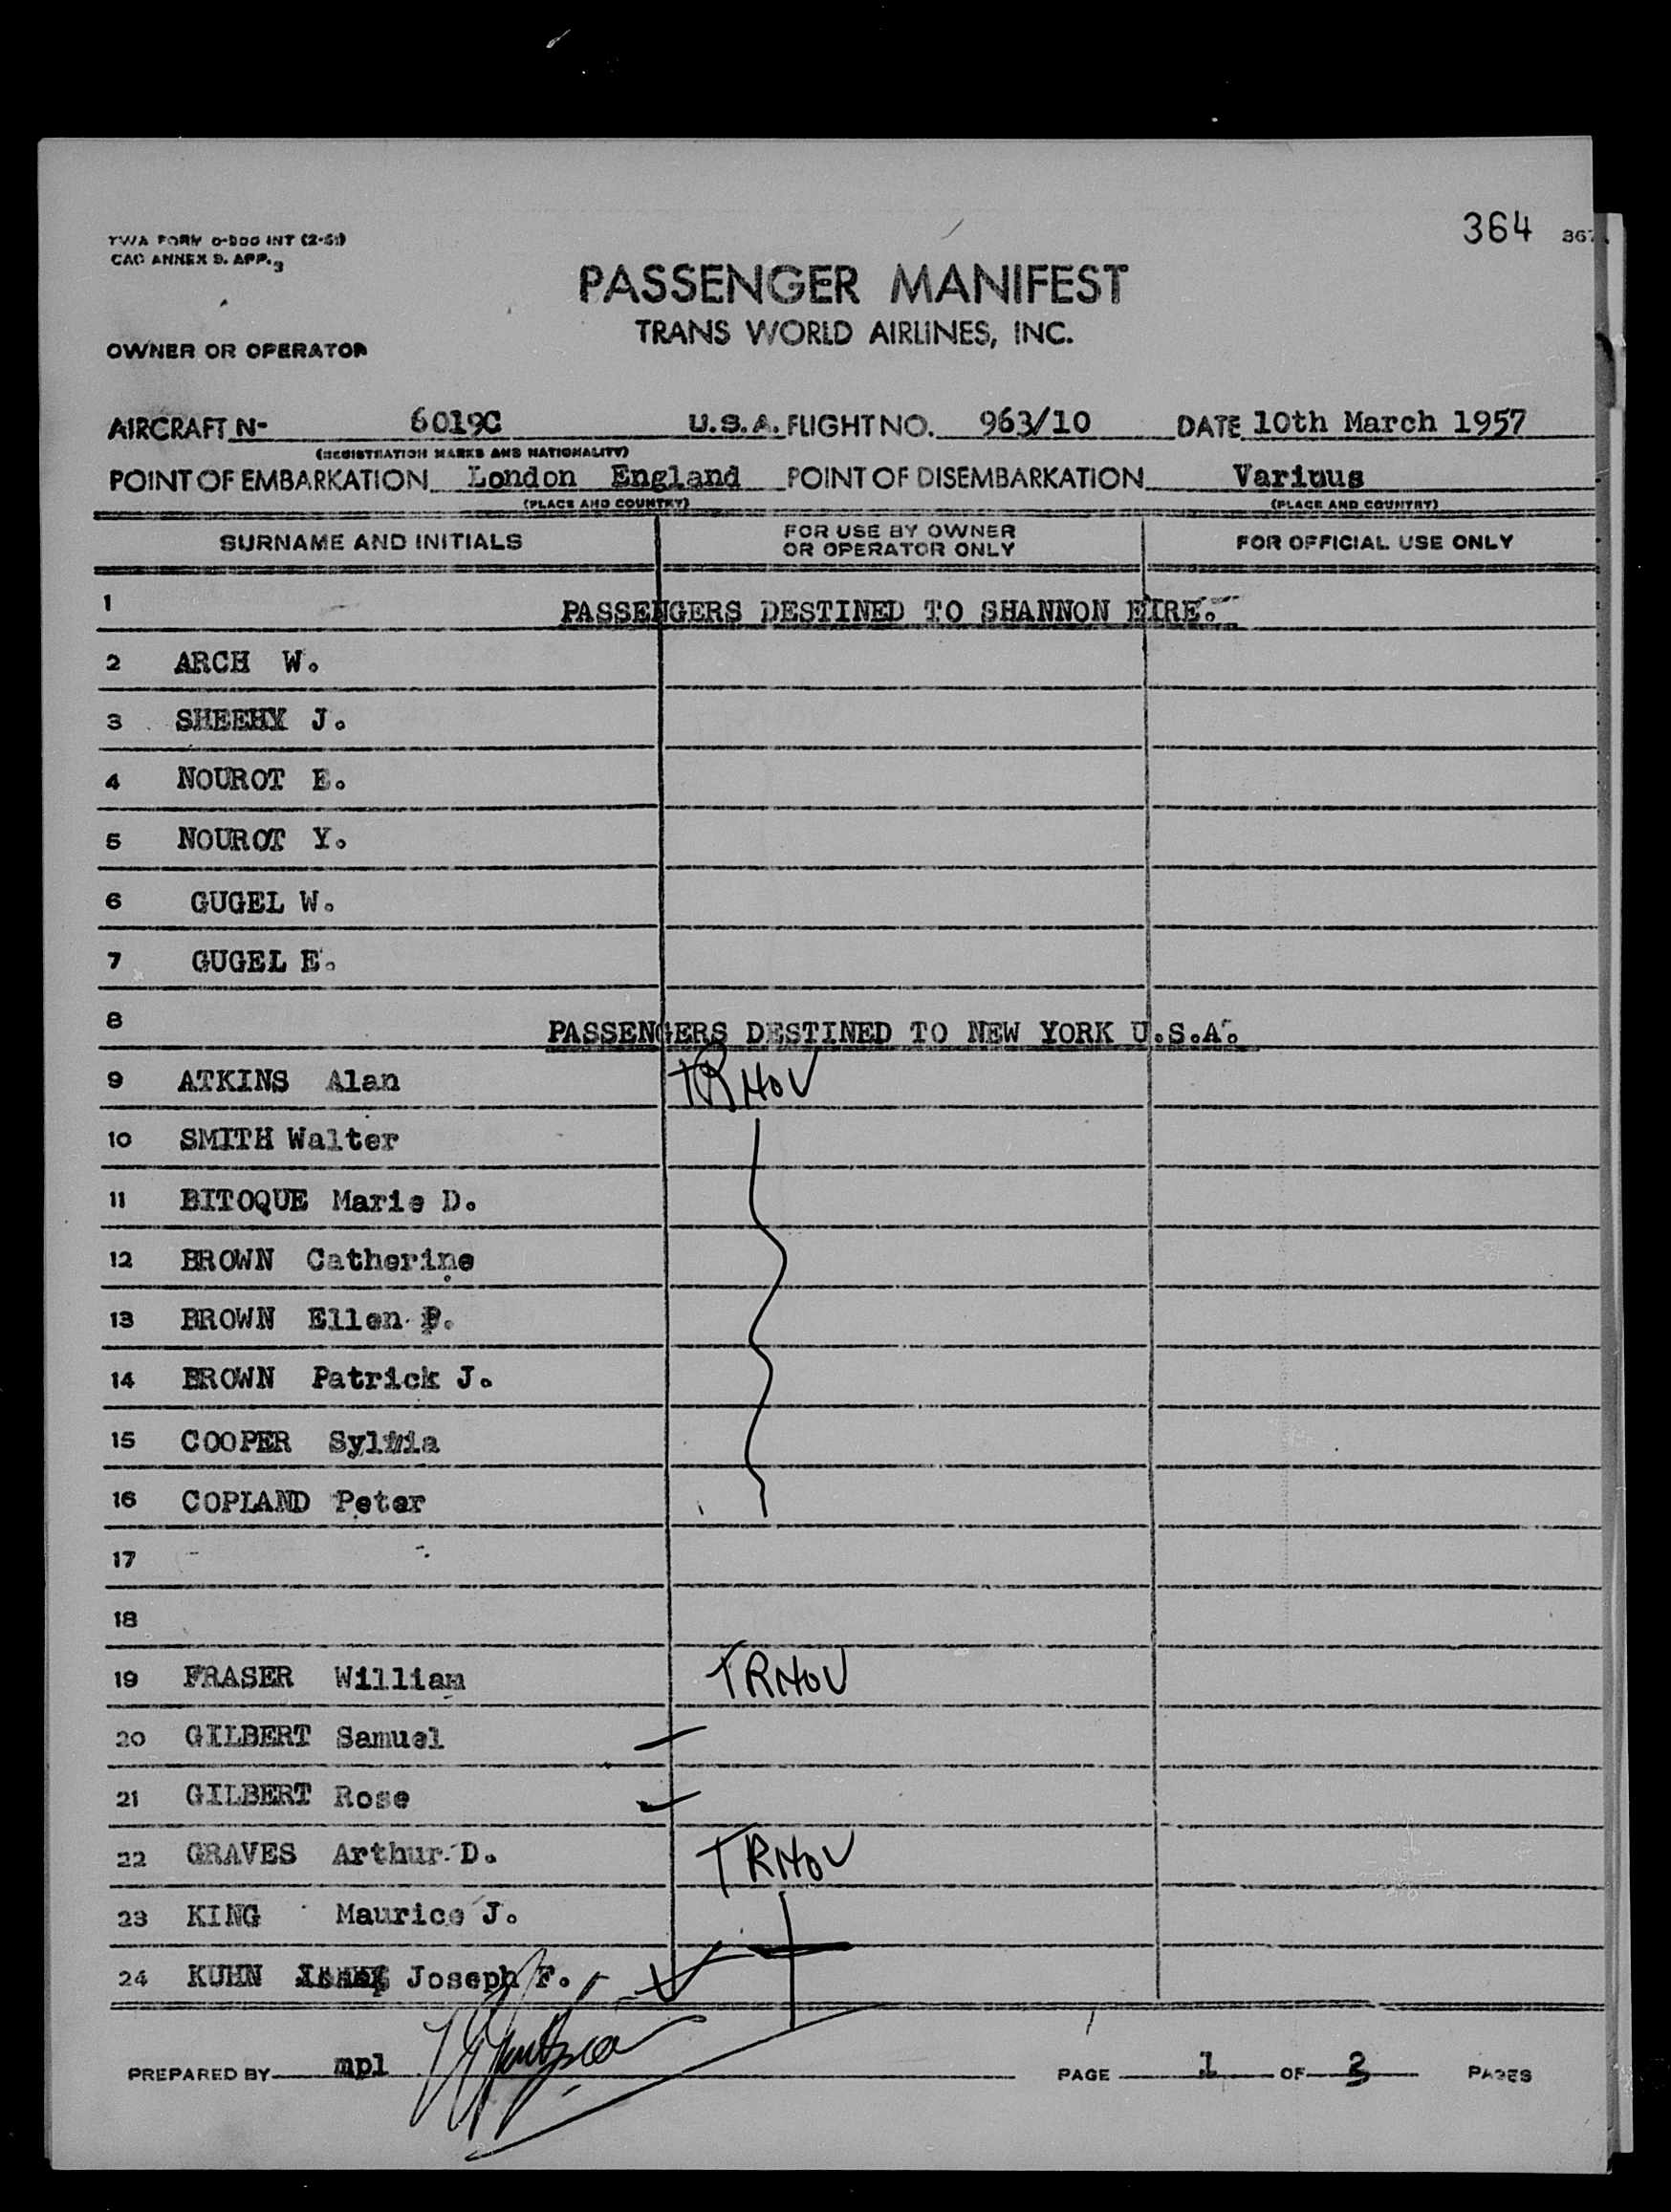 364
TWA FORM O-900 INT (2-51)
CAO ANNEX 9. APP. 3
PASSENGER MANIFEST
TRANS WORLD AIRLINES, INC.
OWNER OR OPERATOR
AIRCRAFT N- 6019C U.S.A. FLIGHT NO. 963/10 DATE 10th March 1957
(REGISTRATION MARKS AND NATIONALITY)
POINT OF EMBARKATION London England POINT OF DISEMBARKATION Various
(PLACE AND COUNTRY) (PLACE AND COUNTRY)
SURNAME AND INITIALS FOR USE BY OWNER OR OPERATOR ONLY FOR OFFICIAL USE ONLY
1 PASSENGERS DESTINED TO SHANNON EIRE.
2 ARCH W.
3 SHEEHY J.
4 NOUROT E.
5 NOUROT Y.
6 GUGEL W.
7 GUGEL E.
8 PASSENGERS DESTINED TO NEW YORK U.S.A.
9 ATKINS Alan TRHOV
10 SMITH Walter
11 BITOQUE Marie D.
12 BROWN Catherine
13 BROWN Ellen P.
14 BROWN Patrick J.
15 COOPER Sylvia
16 COPLAND Peter
17
18
19 FRASER William TRHOV
20 GILBERT Samuel
21 GILBERT Rose
22 GRAVES Arthur D. TRHOV
23 KING Maurice J.
24 KUHN Joseph F.
PREPARED BY mpl PAGE 1 OF 3 PAGES